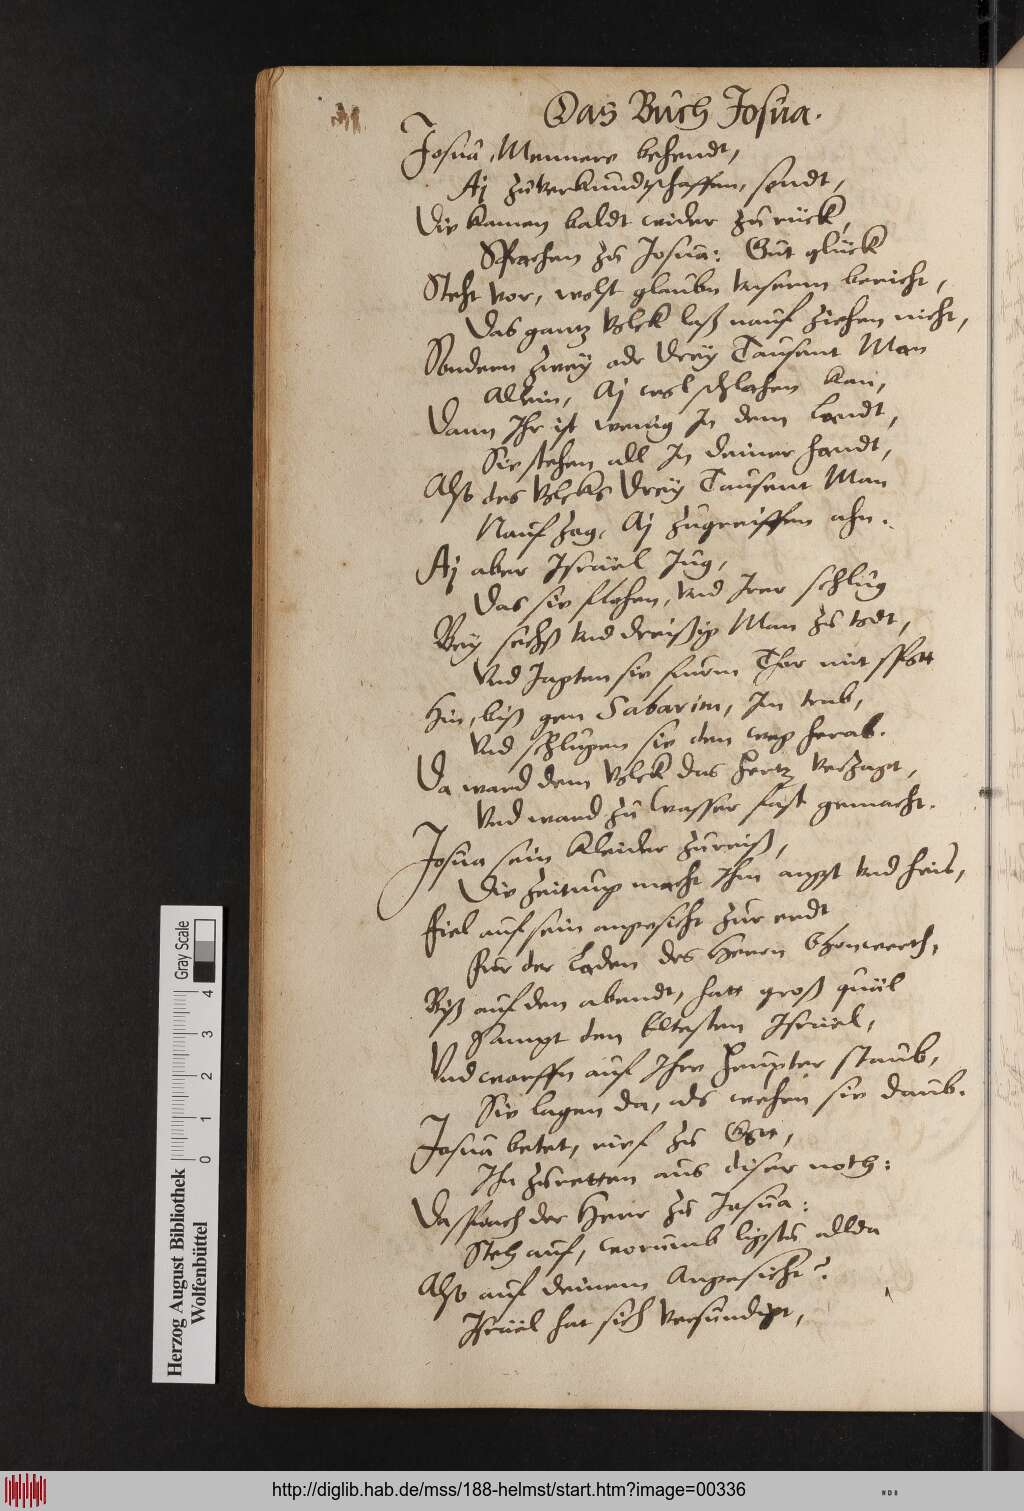 Das Buch Josua.
Josua, Menner behendt,
Aj zuverkundtschaffen, sendt,
Die kamen baldt wider zu rück,
Sprachen zu Josua: Gut glück
Steht vor, wolst glaubn unserm bericht,
Das gantz Volck laß nauf ziehen nicht,
Sondern zwey odr drey Tausent Man
Allein, Aj wol schlahen kan,
Dann Ihr ist wenig In dem Landt,
Sie stehen all In deiner handt,
Also des Volcks drey Tausent Man
Nauf zog, Aj zugreiffen ahn.
Aj aber Israël Jug,
Das sie flohen, Vnd Irer schlug
Bey sechß Vnd dreißig Man zu todt,
Vnd Jagten sie fürm Thor mit spott
Hin, biß gen Sabarim, Im trab,
Vnd schlugen sie den weg herab.
Da ward dem Volck das Hertz verzagt,
Vnd ward zu wasser fast gemacht.
Josua sein Kleider zureiß,
Die zeitung macht Ihm angst Vnd heis,
Fiel auf sein angesicht zur erdt
Für der Laden des Herrn Ehrnwerth,
Biß auf den abendt, hatt groß quäl
Sampt den Eltesten Israël,
Vnd warffn auf Ihre Heupter staub,
Sie lagen da, als wehrn sie daub.
Josua betet, rief zu Gott,
Ihn zuretten aus diser noth:
Da sprach der Herr zu Josua:
Steh auf, worumb ligstu allda
Also auf deinem Angesicht?
Israël hat sich versündigt,
Herzog August Bibliothek
Wolfenbüttel
0 1 2 3 4
Gray Scale
http://diglib.hab.de/mss/188-helmst/start.htm?image=00336